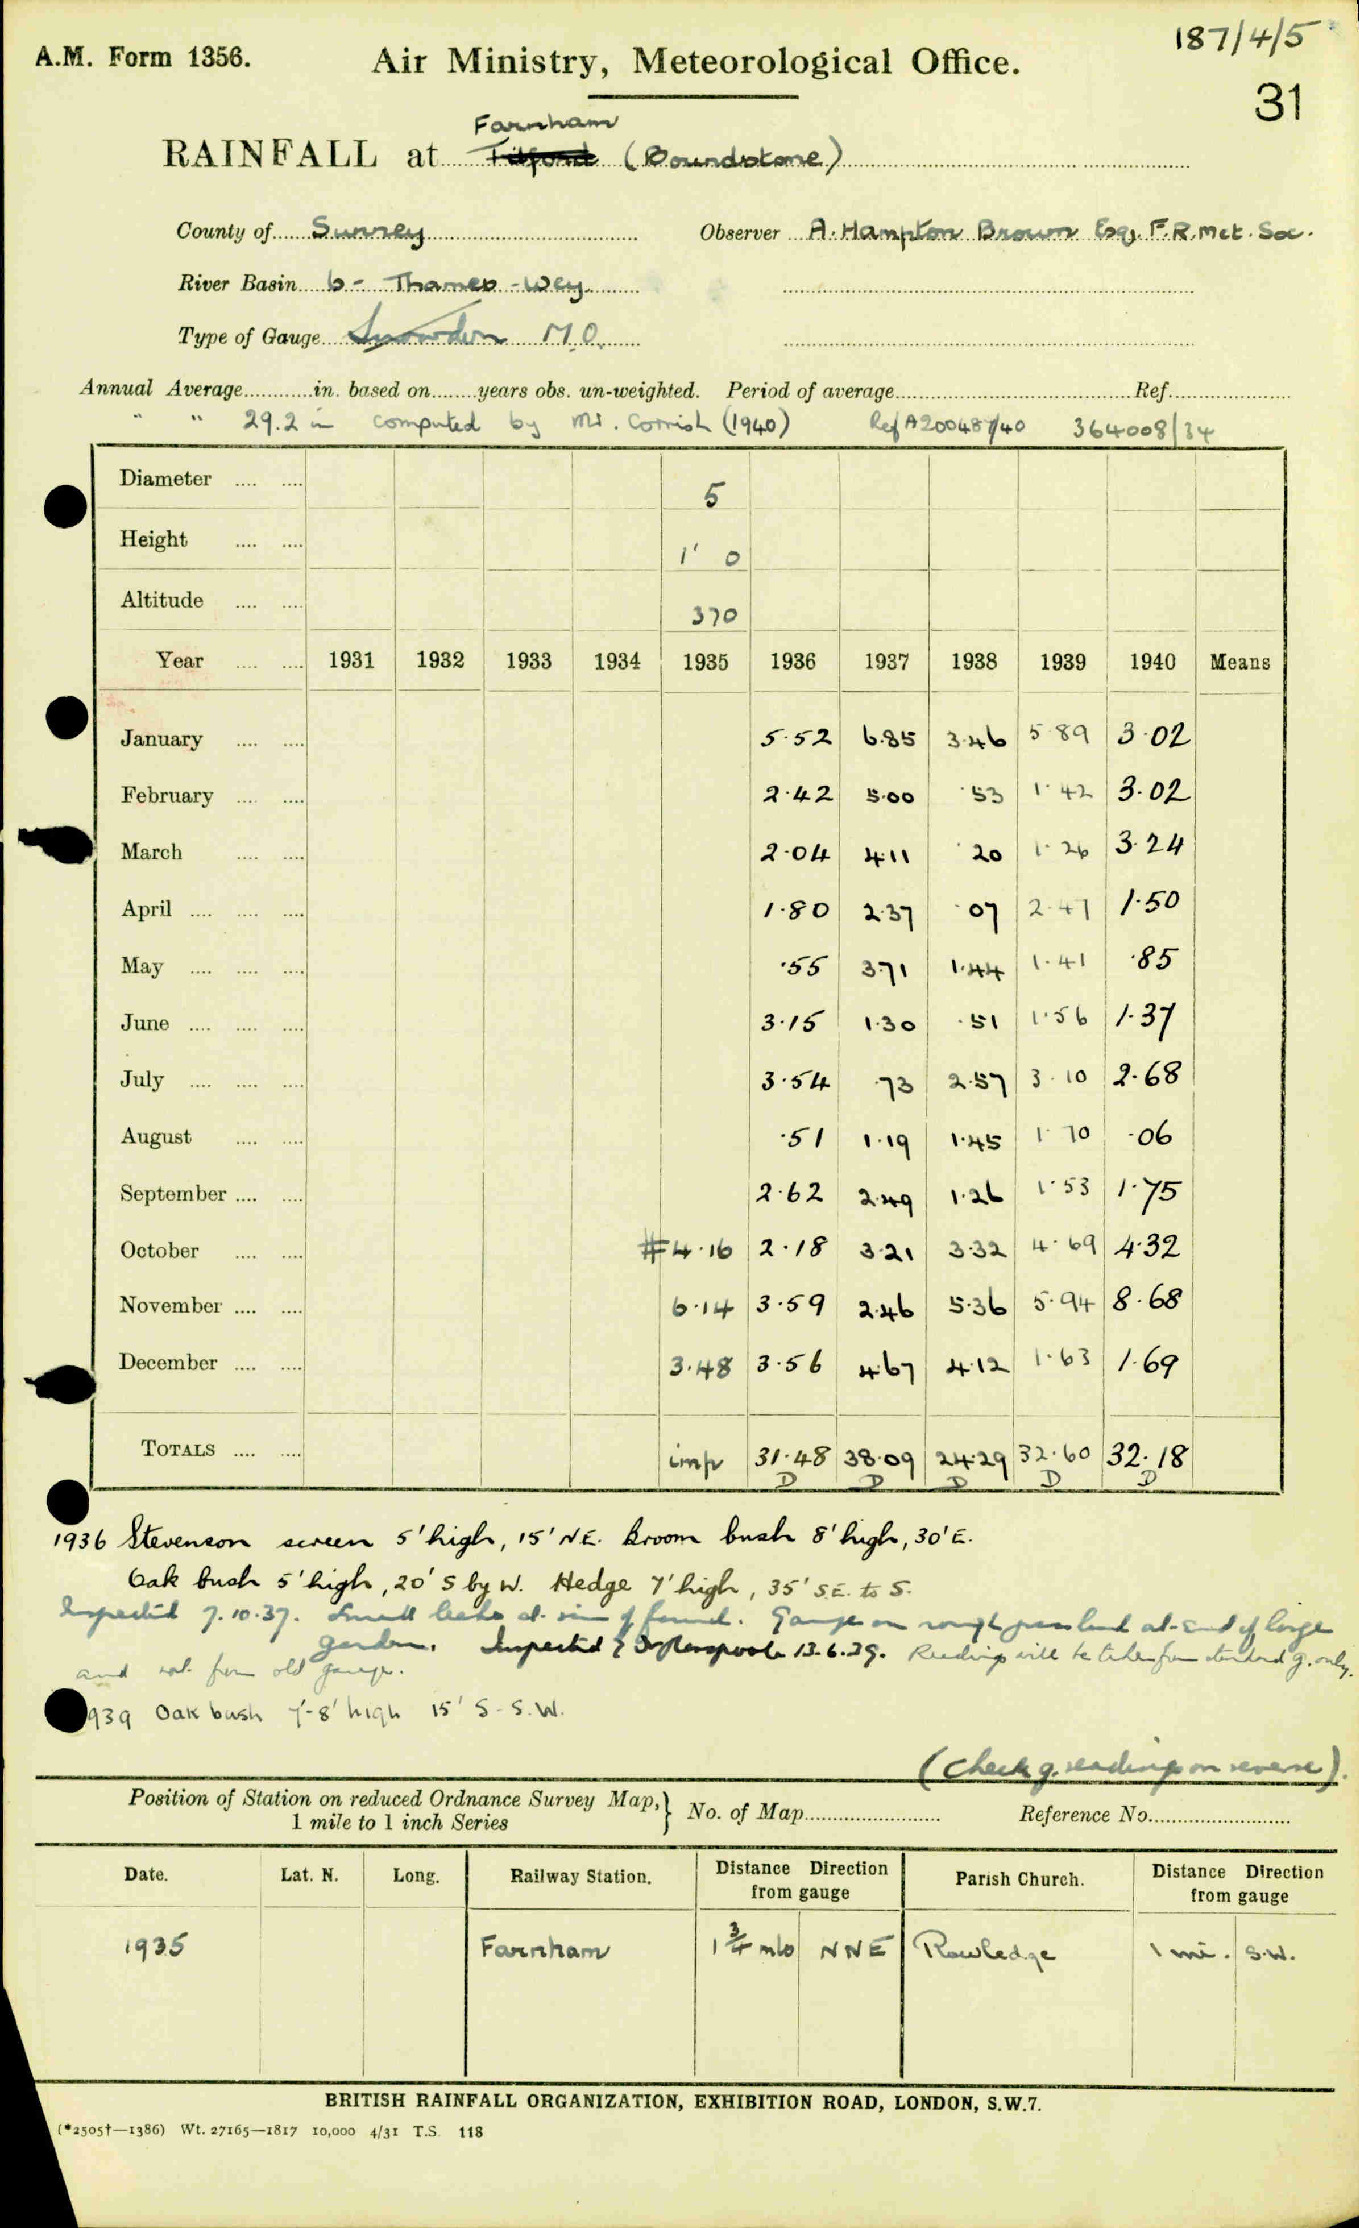 187/4/5
A.M. Form 1356. Air Ministry, Meteorological Office.
31
Farnham
RAINFALL at Tilford (Boundstone)
County of Surrey Observer A. Hampton Brown Esq. F.R.Met.Soc.
River Basin 6 - Thames - Wey
Type of Gauge Snowdon M.O.
Annual Average............in. based on........years obs. un-weighted. Period of average........ Ref........
" " 29.2 in computed by Mr. Cornish (1940) Ref A200487/40 364008/34
Diameter 5
Height 1' 0
Altitude 370
Year 1931 1932 1933 1934 1935 1936 1937 1938 1939 1940 Means
January 5.52 6.85 3.46 5.89 3.02
February 2.42 5.00 .53 1.42 3.02
March 2.04 4.11 .20 1.26 3.24
April 1.80 2.37 .07 2.47 1.50
May .55 3.71 1.44 1.41 .85
June 3.15 1.30 .51 1.56 1.37
July 3.54 .73 2.57 3.10 2.68
August .51 1.19 1.45 1.70 .06
September 2.62 2.49 1.26 1.53 1.75
October #4.16 2.18 3.21 3.32 4.69 4.32
November 6.14 3.59 2.46 5.36 5.94 8.68
December 3.48 3.56 4.67 4.12 1.63 1.69
TOTALS imp 31.48 38.09 24.29 32.60 32.18
D D D D D
1936 Stevenson screen 5' high, 15' N.E. Broom bush 8' high, 30' E.
Oak bush 5' high, 20' S by W. Hedge 7' high, 35' S.E. to S.
Inspected 7.10.37. Small leaks at rim of funnel. Gauge on rough grass land at end of large
garden. Inspected 13.6.39. Readings will be taken from standard g. only.
and not from old gauge.
1939 Oak bush 7'-8' high 15' S-S.W.
(Check g. readings on reverse).
Position of Station on reduced Ordnance Survey Map, } No. of Map........ Reference No........
1 mile to 1 inch Series
Date. Lat. N. Long. Railway Station. Distance Direction from gauge Parish Church. Distance Direction from gauge
1935 Farnham 1 3/4 mls NNE Rowledge 1 mi. S.W.
BRITISH RAINFALL ORGANIZATION, EXHIBITION ROAD, LONDON, S.W.7.
(*2505†—1386) Wt. 27165—1817 10,000 4/31 T.S. 118